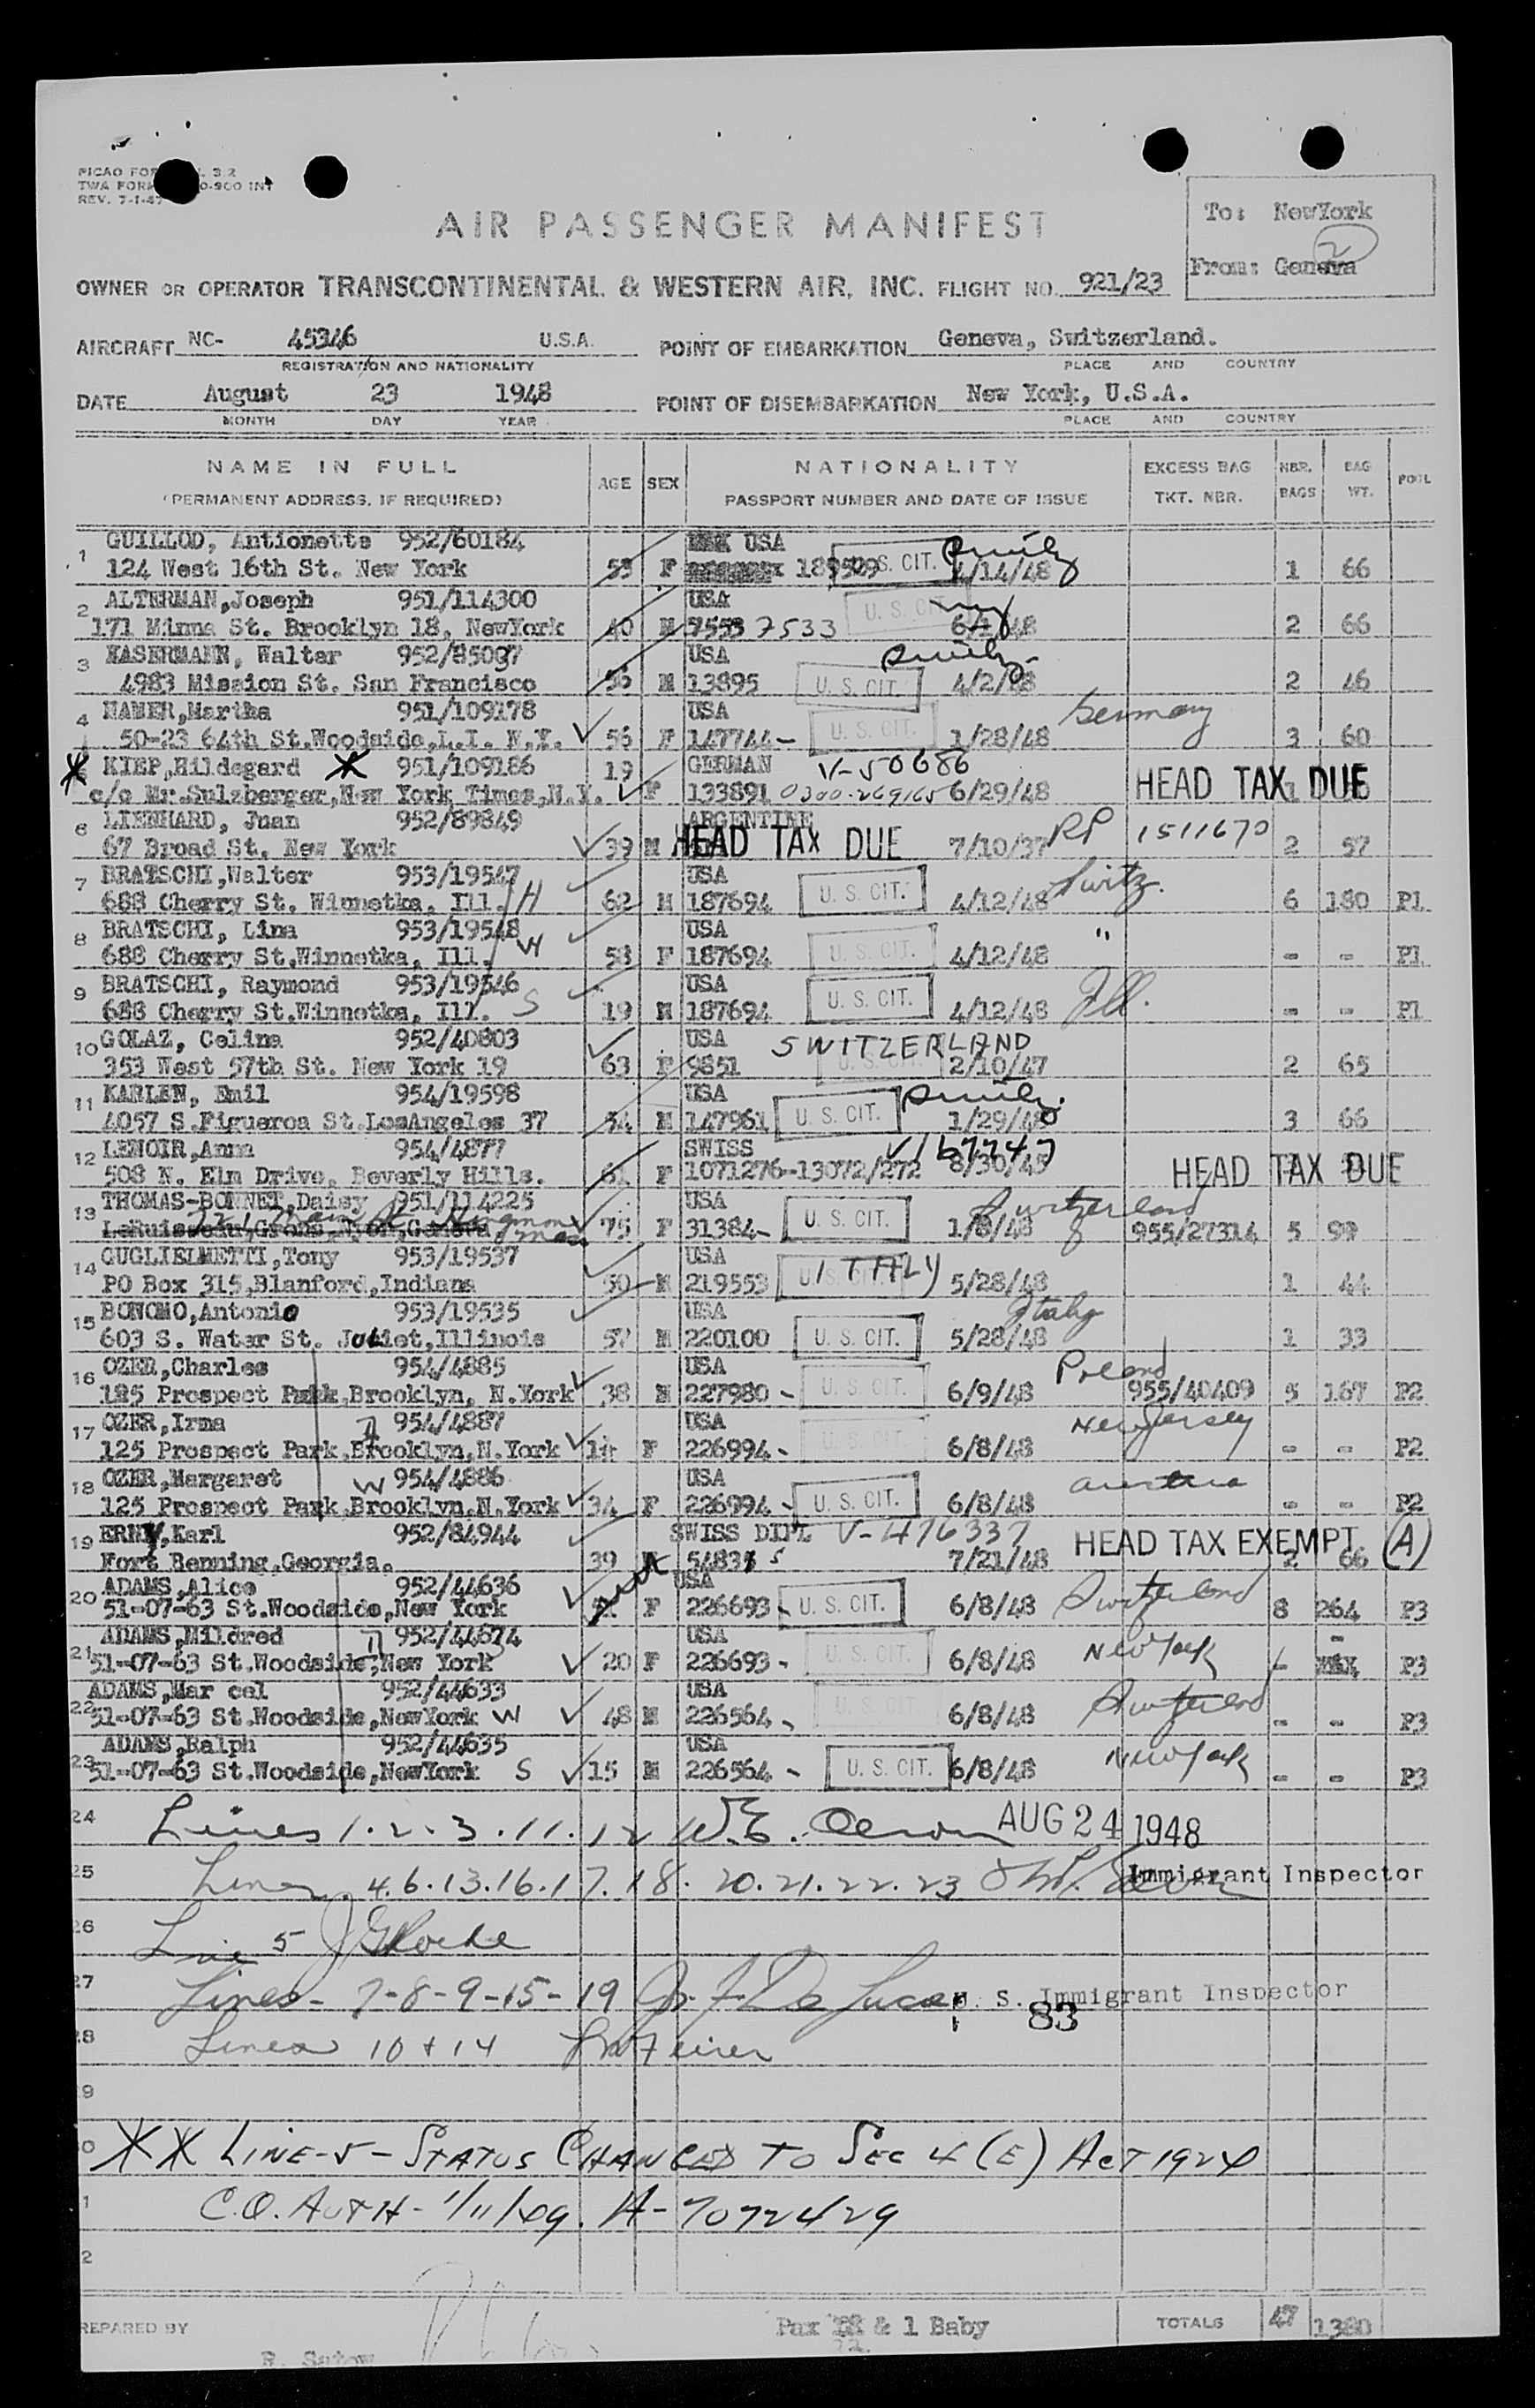 PICAO FOR
TWA FORM 0-900 INT
REV. 7-1-47
To: NewYork
2
From: Geneva
AIR PASSENGER MANIFEST
OWNER OR OPERATOR TRANSCONTINENTAL & WESTERN AIR, INC. FLIGHT NO. 921/23
AIRCRAFT NC- 45346 U.S.A. POINT OF EMBARKATION Geneva, Switzerland.
REGISTRATION AND NATIONALITY PLACE AND COUNTRY
DATE August 23 1948 POINT OF DISEMBARKATION New York, U.S.A.
MONTH DAY YEAR PLACE AND COUNTRY
NAME IN FULL AGE SEX NATIONALITY EXCESS BAG NBR. BAG POOL
(PERMANENT ADDRESS, IF REQUIRED) PASSPORT NUMBER AND DATE OF ISSUE TKT. NBR. BAGS WT.
1 GUILLOD, Antionette 952/60184 USA
124 West 16th St. New York 53 F U.S. CIT. 4/14/48 1 66
2 ALTERMAN,Joseph 951/114300 USA U.S. CIT.
171 Minna St. Brooklyn 18, NewYork 40 M 7533 2 66
3 HASERMANN, Walter 952/85037 USA
4983 Mission St. San Francisco 56 M 13895 U.S. CIT. 4/2/48 2 46
4 HAMER,Martha 951/109178 USA Germany
50-23 64th St.Woodside,L.I. N.Y. 56 F 147744- U.S. CIT. 1/28/48 3 60
KIEP,Hildegard 951/109186 19 GERMAN V-50686
c/o Mr.Sulzberger,New York Times,N.Y. F 133891 0300-269165 6/29/48 HEAD TAX DUE
6 LIENHARD, Juan 952/89849 ARGENTINE
67 Broad St. New York 39 M HEAD TAX DUE 7/10/37 RP 1511670 2 57
7 BRATSCHI,Walter 953/19547 USA Switz.
688 Cherry St. Winnetka, Ill. H 62 M 187694 U.S. CIT. 4/12/48 6 180 P1
8 BRATSCHI, Lina 953/19548 USA "
688 Cherry St.Winnetka, Ill. W 58 F 187694 U.S. CIT. 4/12/48 - - P1
9 BRATSCHI, Raymond 953/19546 USA Ill.
688 Cherry St.Winnetka, Ill. S 19 M 187694 U.S. CIT. 4/12/48 - - P1
10 GOLAZ, Celina 952/40803 USA SWITZERLAND
353 West 57th St. New York 19 63 F 9851 U.S. CIT. 2/10/47 2 65
11 KARLEN, Emil 954/19598 USA
4057 S.Figueroa St.LosAngeles 37 54 M 147961 U.S. CIT. 1/29/48 3 66
12 LENOIR,Anna 954/4877 SWISS V167747
508 N. Elm Drive, Beverly Hills. 61 F 1071276-13072/272 8/30/45 HEAD TAX DUE
13 THOMAS-BONNET,Daisy 951/114225 USA Switzerland
75 F 31384- U.S. CIT. 1/8/48 955/27314 5 99
14 GUGLIELMETTI,Tony 953/19537 USA ITALY
PO Box 315,Blanford,Indiana 50 M 219553 U.S. CIT. 5/28/48 1 44
15 BONOMO,Antonio 953/19535 USA Italy
603 S. Water St. Joliet,Illinois 57 M 220100 U.S. CIT. 5/28/48 1 33
16 OZER,Charles 954/4885 USA Poland
125 Prospect Park,Brooklyn, N.York 38 M 227980 - U.S. CIT. 6/9/48 955/40409 5 167 P2
17 OZER,Irma 954/4887 USA New Jersey
125 Prospect Park,Brooklyn,N.York 14 F 226994- U.S. CIT. 6/8/48 - - P2
18 OZER,Margaret W 954/4886 USA austria
125 Prospect Park,Brooklyn,N.York 34 F 226994 - U.S. CIT. 6/8/48 - - P2
19 ERNY,Karl 952/84944 SWISS DIPL V-476337
Fort Benning,Georgia. 39 M 7/21/48 HEAD TAX EXEMPT 2 66 (A)
20 ADAMS,Alice 952/44636 USA Switzerland
51-07-63 St.Woodside,New York F 226693 - U.S. CIT. 6/8/48 8 264 P3
21 ADAMS,Mildred 952/44634 USA New York
51-07-63 St.Woodside,New York 20 F 226693 - U.S. CIT. 6/8/48 - - P3
22 ADAMS,Mar cel 952/44633 USA Switzerland
51-07-63 St.Woodside,NewYork W 48 M 226564 - U.S. CIT. 6/8/48 - - P3
23 ADAMS,Ralph 952/44635 USA New York
51-07-63 St.Woodside,NewYork S 15 M 226564 - U.S. CIT. 6/8/48 - - P3
24 Lines 1.2.3.11.12 W.E. AUG 24 1948
25 Lines 4.6.13.16.17.18.20.21.22.23 Immigrant Inspector
26 Line 5 J G Roche
27 Lines- 7-8-9-15-19 De Luca U. S. Immigrant Inspector
83
28 Lines 10+14
29
30 XX LINE-5-STATUS CHANGED TO SEC 4(E) ACT 1924
1 C.O. AUTH-1/11/49. A-7072429
2
PREPARED BY Pax & 1 Baby TOTALS 47 1380
22
R. Satow